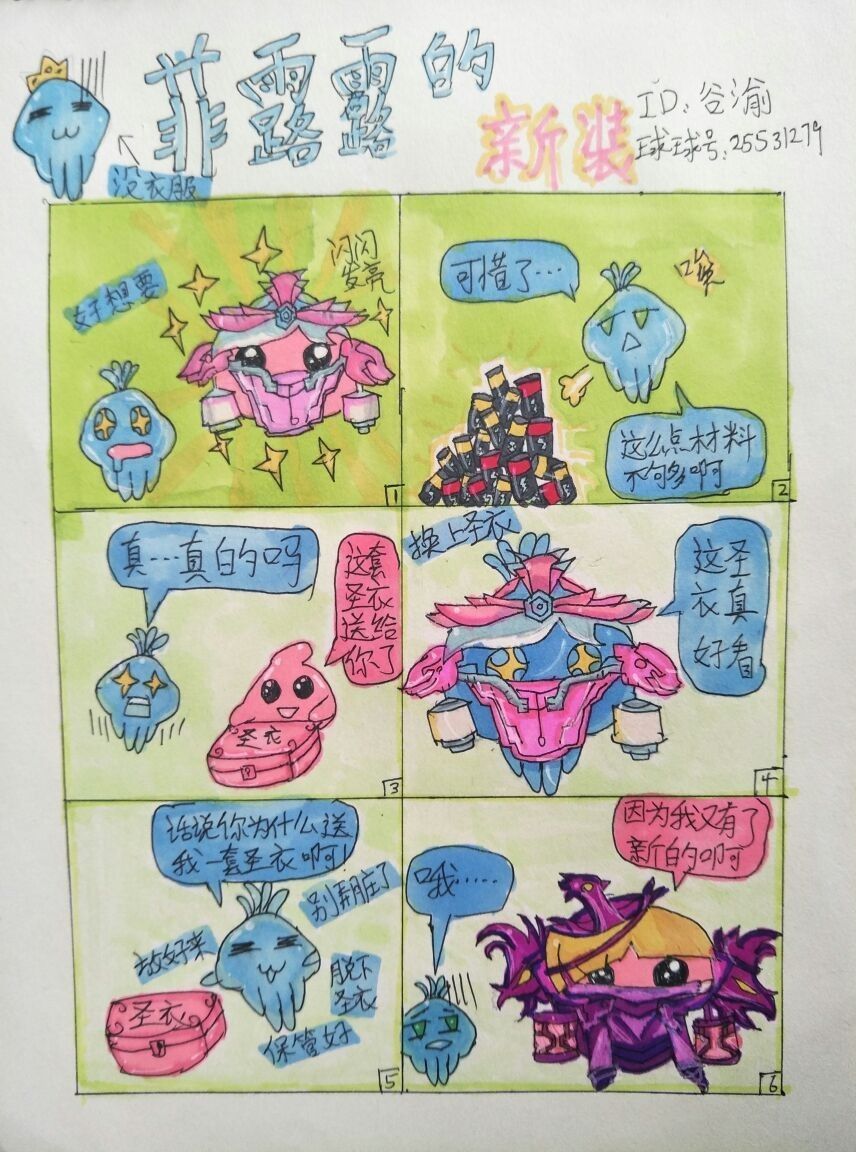 菲露露的
新装
ID:谷渝
球球号:25531279
没衣服
好想要
闪闪
发亮
1
可惜了…
唉
这么点材料
不够多啊
2
真…真的吗
这套
圣衣
送给
你了
圣衣
3
换上圣衣
这圣
衣真
好看
4
话说你为什么送
我一套圣衣啊!
别弄脏了
放好来
脱下
圣衣
圣衣
保管好
5
因为我又有了
新的啊
哦……
6